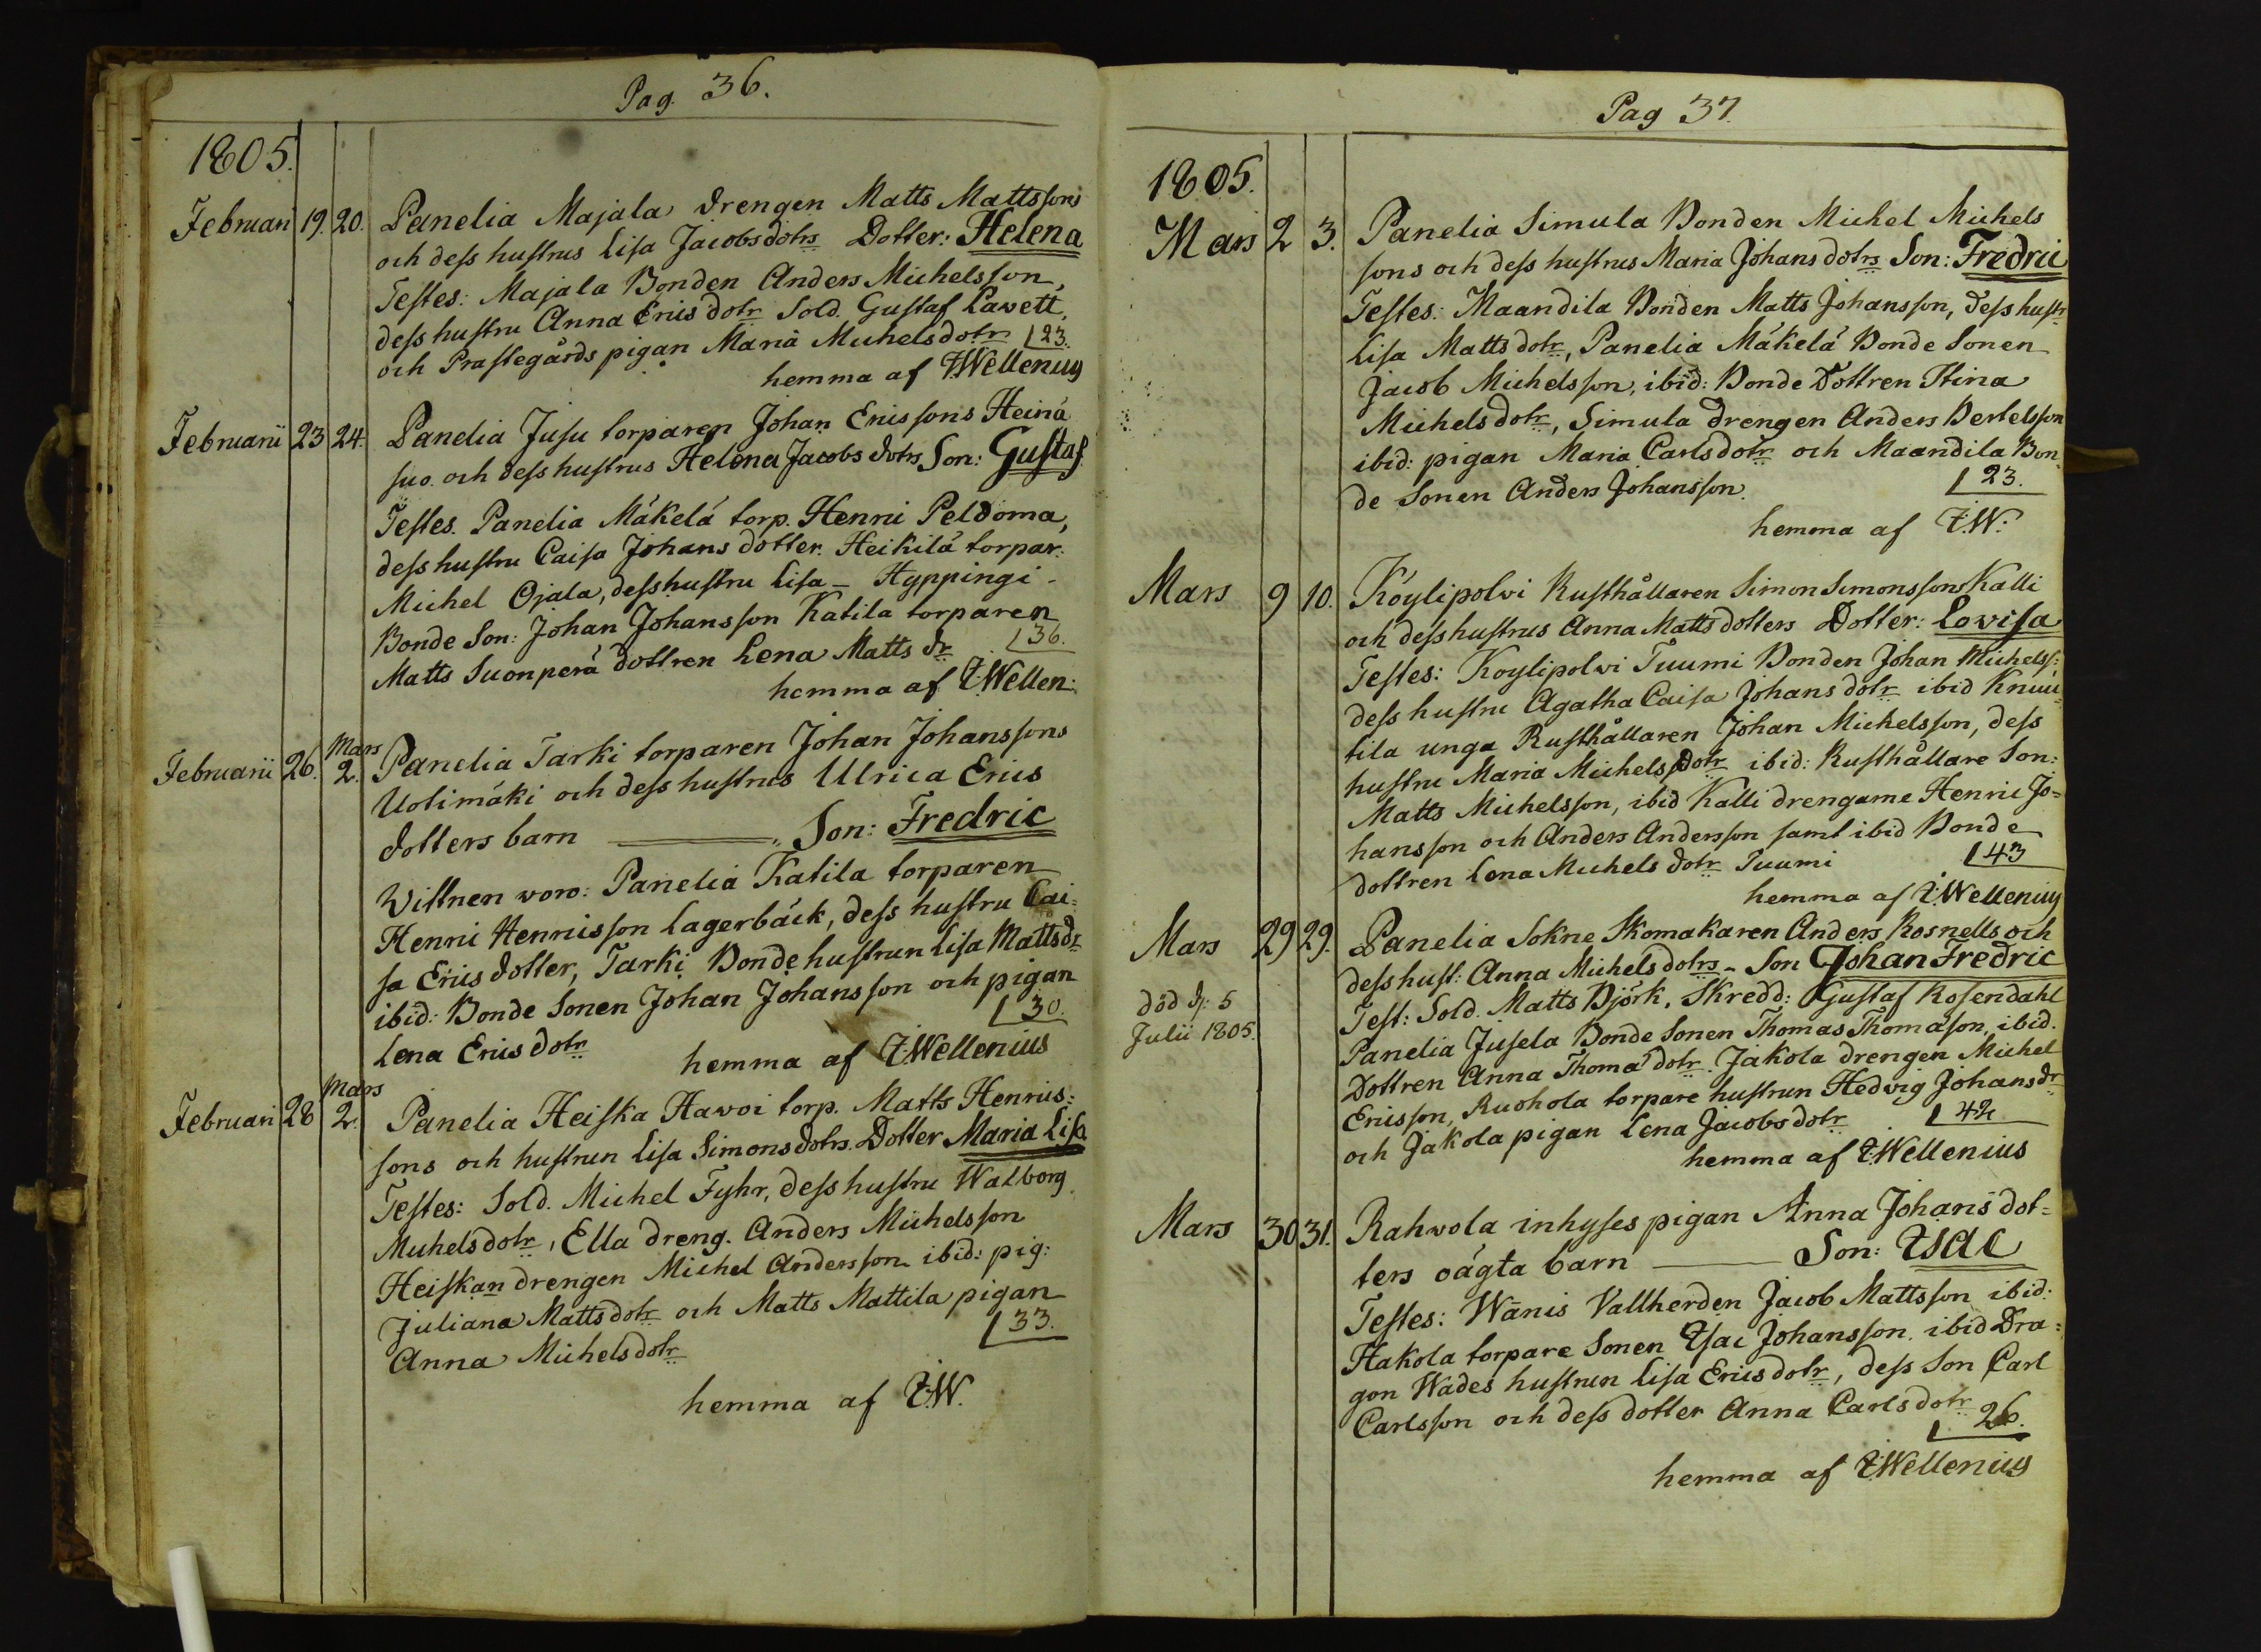 Pag. 36.
1805.
Februari 19. 20. Panelia Majala drengen Matts Mattssons
och dess hustrus Lisa Jacobsdotrs Dotter: Helena
Testes: Majala Bonden Anders Michelsson,
dess hustru Anna Ericsdotr Sold. Gustaf Lavett,
och Prästegårds pigan Maria Michelsdotr 23.
hemma af I.Wellenius
Februarii 23 24. Panelia Jusu torparen Johan Ericssons Heinä
suo och dess hustrus Helena Jacobs dotrs Son: Gustaf.
Testes. Panelia Mäkelä torp. Henric Peldoma,
dess hustru Caisa Johans dotter. Heikilä torpar:
Michel Ojala, dess hustru Lisa – Hyppingi-
Bonde Son: Johan Johansson Katila torparen
Matts Suonperä dottren Lena Matts dr 36.
hemma af I.Wellen:
Februarii 26. Mars 2. Panelia Tarki torparen Johan Johanssons
Uotimäki och dess hustrus Ulrica Erics
dotters barn ——— Son: Fredric
Wittnen woro: Panelia Katila torparen
Henric Henricsson Lagerbäck, dess hustru Cai=
sa Erics dotter, Tarki Bonde hustrun Lisa Matts dr
ibid: Bonde Sonen Johan Johansson och pigan
Lena Ericsdotr 30.
hemma af I.Wellenius
Februari 28 Mars 2. Panelia Heiska Hawoi torp. Matts Henrics=
sons och hustrun Lisa Simonsdotrs. Dotter Maria Lisa
Testes: Sold. Michel Fyhr, dess hustru Walborg
Michelsdotr, Ella dreng. Anders Michelsson
Heiskan drengen Michel Andersson ibid: pig:
Juliana Mattsdotr och Matts Mattila pigan
Anna Michelsdotr 33.
hemma af I.W.
Pag 37.
1805.
Mars 2 3. Panelia Simula Bonden Michel Michels
sons och dess hustrus Maria Johans dotrs Son: Fredric
Testes: Maandila Bonden Matts Johansson, dess hustr
Lisa Matts dotr, Panelia Mäkelä Bonde Sonen
Jacob Michelsson, ibid: Bonde Dottren Stina
Michels dotr, Simula drengen Anders Bertelsson
ibid: pigan Maria Carlsdotr och Maandila Bon
de Sonen Anders Johansson. 23.
hemma af I.W.
Mars 9 10. Köylipolvi Rusthållaren Simon Simonssons Kalli
och dess hustrus Anna Matts dotters Dotter: Lovisa
Testes: Koylipolvi Tuumi Bonden Johan Michelss:
dess hustru Agatha Caisa Johans dotr ibid Knuu
tila unga Rusthållaren Johan Michelsson, dess
hustru Maria Michelsdotr ibid: Rusthållare Son:
Matts Michelsson, ibid Kalli drengarne Henric Jo=
hansson och Anders Andersson samt ibid Bonde
dottren Lena Michels dotr Tuumi 43
hemma af I.Wellenius
Mars 29 29. Panelia Sokne Skomakaren Anders Rosnells och
dess hust: Anna Michels dotrs – Son Johan Fredric
död d: 5
Julii 1805.
Test: Sold. Matts Björk, Skredd: Gustaf Rosendahl
Panelia Jusela Bonde Sonen Thomas Thomason, ibid.
Dottren Anna Thoma dotr Jakola drengen Michel
Ericsson, Ruohola torpare hustrun Hedvig Johans dr
och Jakola pigan Lena Jacobs dotr 42
hemma af I.Wellenius
Mars 30 31. Rahwola inhyses pigan Anna Johans dot=
ters oägta barn ——— Son: Isac
Testes: Wänis Vallherden Jacob Mattsson ibid:
Hakola torpare Sonen Isac Johansson. ibid Dra=
gon Wades hustrun Lisa Erics dotr, dess Son Carl
Carlsson och dess dotter Anna Carls dotr 26.
hemma af I.Wellenius